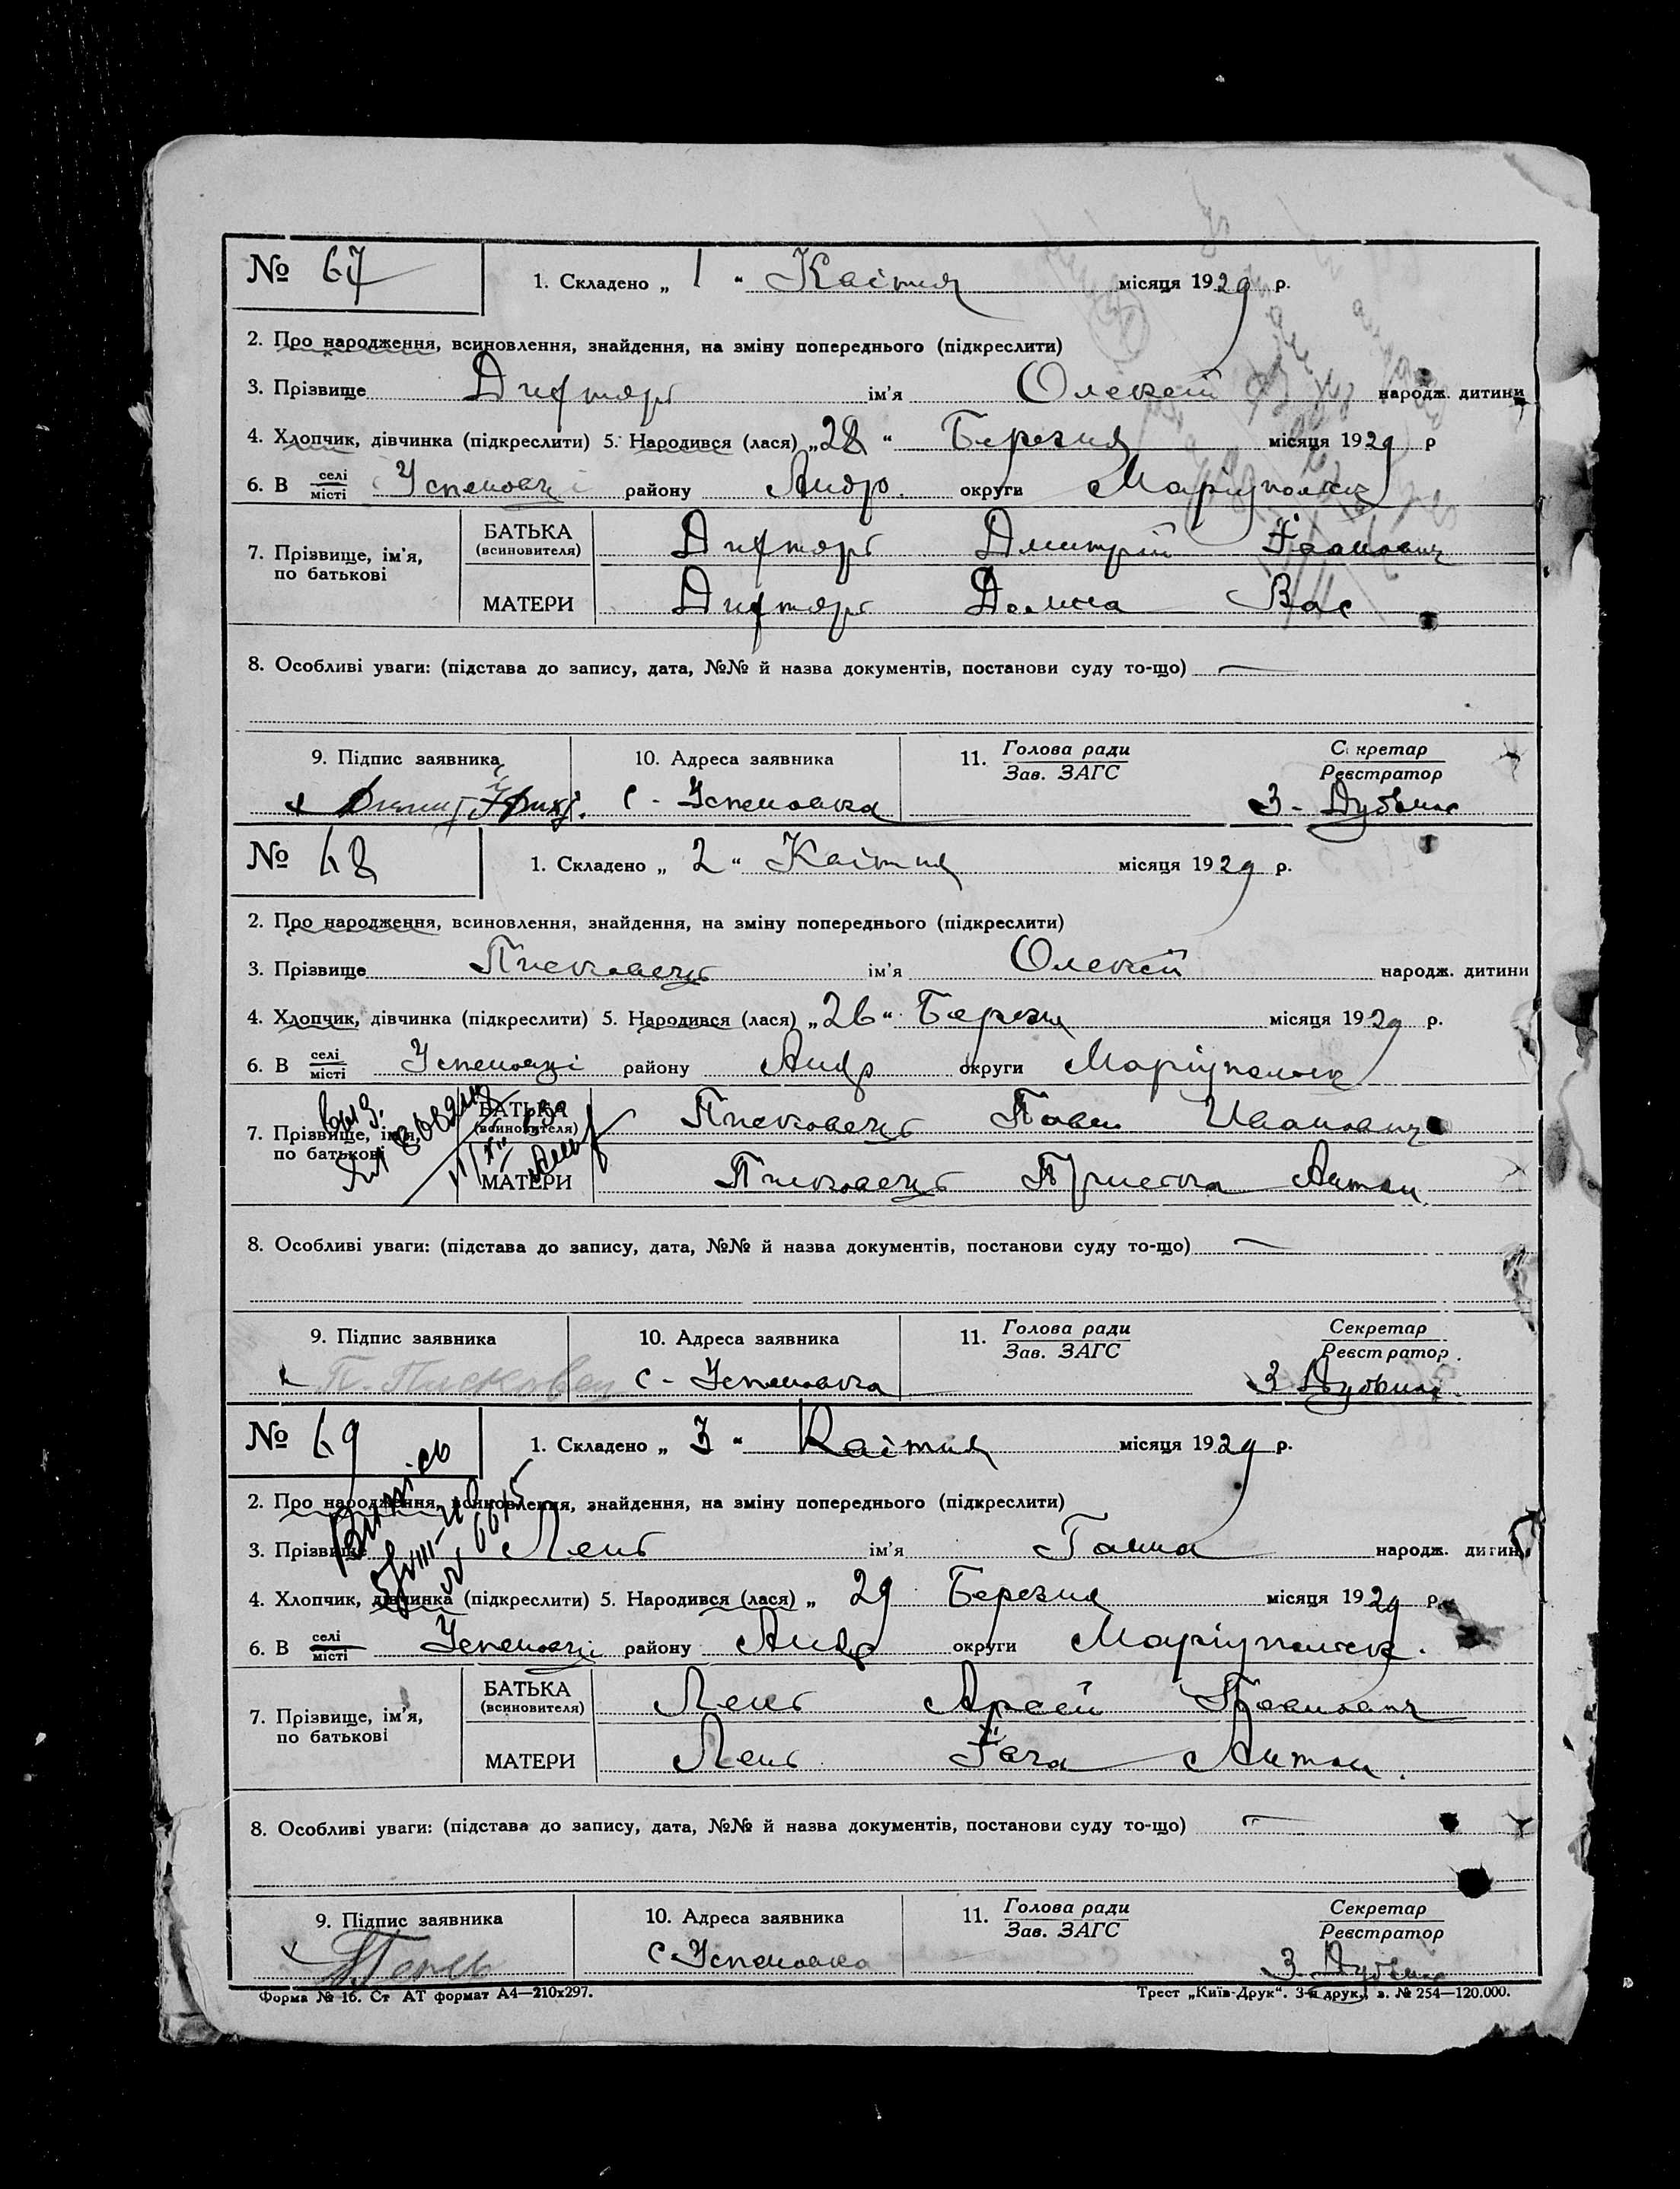 № 67 1. Складено „ 1 “ Квітня місяця 1929 р.
2. Про народження, всиновлення, знайдення, на зміну попереднього (підкреслити)
3. Прізвище ім'я Олексій народж. дитини
4. Хлопчик, дівчинка (підкреслити) 5. Народився (лася) „28“ Березня місяця 1929 р
6. В селі місті Успеновці району Андр. округи Маріупольск
7. Прізвище, ім'я, по батькові
БАТЬКА (всиновителя) Дмитрій Іванович
МАТЕРИ Вас
8. Особливі уваги: (підстава до запису, дата, №№ й назва документів, постанови суду то-що)
9. Підпис заявника 10. Адреса заявника 11. Голова ради Зав. ЗАГС Секретар Реєстратор
с - Успеновка З - Дубына
№ 68 1. Складено „ 2 “ Квітня місяця 1929 р.
2. Про народження, всиновлення, знайдення, на зміну попереднього (підкреслити)
3. Прізвище Писковець ім'я Олексій народж. дитини
4. Хлопчик, дівчинка (підкреслити) 5. Народився (лася) „26“ Березня місяця 1929 р.
6. В селі місті Успеновці району Андр округи Маріупольск
7. Прізвище, ім'я, по батькові
БАТЬКА (всиновителя) Писковець Павел Иванович
МАТЕРИ Писковець Антон.
8. Особливі уваги: (підстава до запису, дата, №№ й назва документів, постанови суду то-що)
9. Підпис заявника 10. Адреса заявника 11. Голова ради Зав. ЗАГС Секретар Реєстратор.
П. Písковец с - Успеновка З Дубына.
№ 69 1. Складено „ 3 “ Квітня місяця 1929 р.
2. Про народження, всиновлення, знайдення, на зміну попереднього (підкреслити)
3. Прізвище Лень ім'я Ганна народж. дитини
4. Хлопчик, дівчинка (підкреслити) 5. Народився (лася) „ 29 Березня місяця 1929 р
6. В селі місті Успеновці району Андр округи Маріупольск.
7. Прізвище, ім'я, по батькові
БАТЬКА (всиновителя) Лень Арсей Іванович
МАТЕРИ Лень Антон.
8. Особливі уваги: (підстава до запису, дата, №№ й назва документів, постанови суду то-що)
9. Підпис заявника 10. Адреса заявника 11. Голова ради Зав. ЗАГС Секретар Реєстратор
с-Успеновка З. Дубына
Форма № 16. Ст АТ формат А4—210х297. Трест „Київ-Друк“. 3-я друк., з. № 254—120.000.